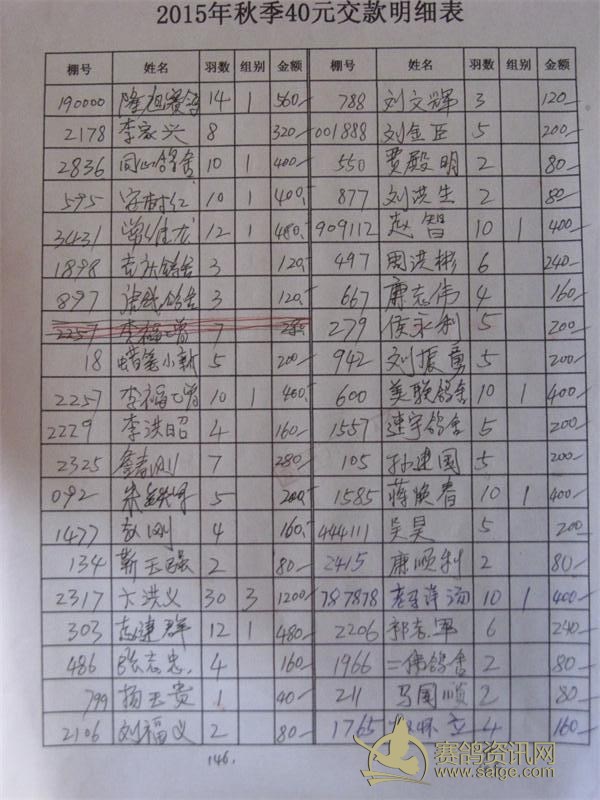 2015年秋季40元交款明细表
棚号 姓名 羽数 组别 金额 棚号 姓名 羽数 组别 金额
190000 14 1 560 788 刘文辉 3 120
2178 李家兴 8 320 001888 刘金臣 5 200
2836 同心鸽舍 10 1 400 550 贾殿明 2 80
595 10 1 400 877 刘洪生 2 80
3431 12 1 480 909112 赵智 10 1 400
1898 鸽舍 3 120 497 周洪彬 6 240
897 鸽舍 3 120 667 康志伟 4 160
2257 李福 7 280 279 侯永利 5 200
18 蜡笔小新 5 200 942 刘振勇 5 200
2257 李福 10 1 400 600 美联鸽舍 10 1 400
2229 李洪昭 4 160 1557 建宇鸽舍 5 200
2325 7 280 105 孙建国 5 200
092 朱 5 200 1585 蒋焕春 10 1 400
1477 刚 4 160 444111 吴昊 5 200
134 靳玉强 2 80 2415 康顺利 2 80
2317 洪义 30 3 1200 787878 10 1 400
303 建群 12 1 480 2206 郭志军 6 240
486 张志忠 4 160 1966 二伟鸽舍 2 80
799 杨玉贵 1 40 211 马国顺 2 80
2106 刘福义 2 80 1765 立 4 160
146.
赛鸽资讯网
www.saige.com